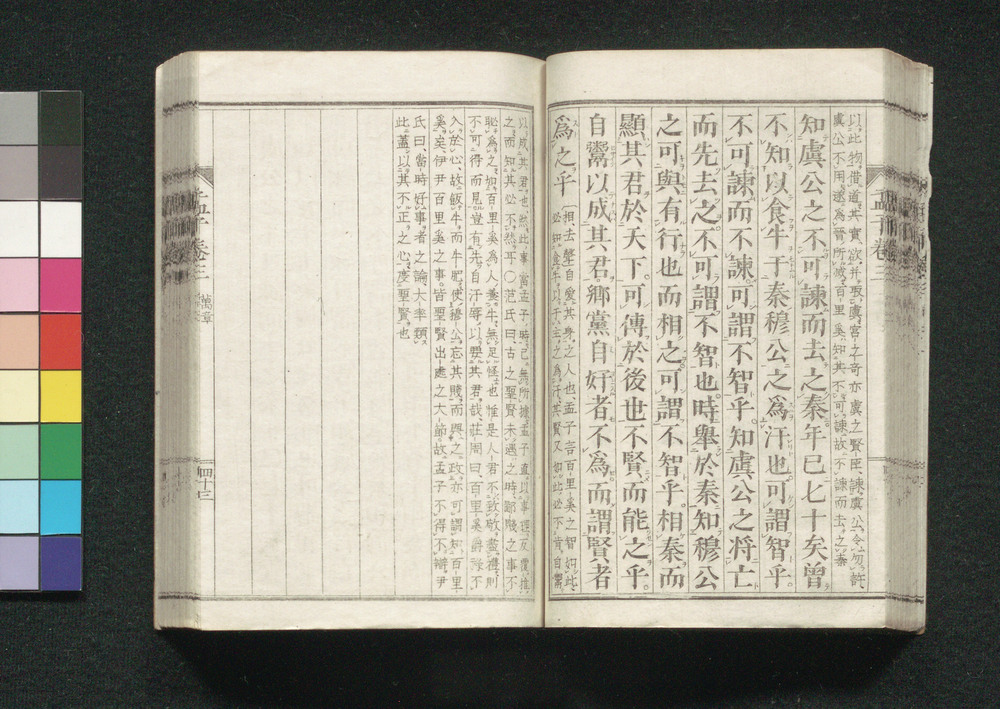 以此物借道其實欲幷取虞宮之奇亦虞之賢臣諫虞公令勿許
虞公不用遂爲晉所滅百里奚知其不可諫故不諫而去之秦
知虞公之不可諫而去之秦年已七十矣曾
不知以食牛于秦穆公之爲汙也可謂智乎
不可諫而不諫可謂不智乎知虞公之將亡
而先去之不可謂不智也時舉於秦知穆公
之可與有行也而相之可謂不智乎相秦而
顯其君於天下可傳於後世不賢而能之乎
自鬻以成其君鄉黨自好者不爲而謂賢者
爲之乎
相去聲自愛其身之人也孟子言百里奚之智如此
必知食牛以干主之爲汙其賢又如此必不肯自鬻
以成其君也然此事當孟子時已無所據孟子直以事理反覆推
之而知其必不然耳○范氏曰古之聖賢未遇之時鄙賤之事不
恥爲之如百里奚爲人養牛無足怪也惟是人君不致敬盡禮則
不可得而見豈有先自汙辱以要其君哉莊周曰百里奚爵祿不
入於心故飯牛而牛肥使穆公忘其賤而與之政亦可謂知百里
奚矣伊尹百里奚之事皆聖賢出處之大節故孟子不得不辯尹
氏曰當時好事者之論大率類
此蓋以其不正之心度聖賢也
孟子卷三
萬章
四十三
孟子卷三